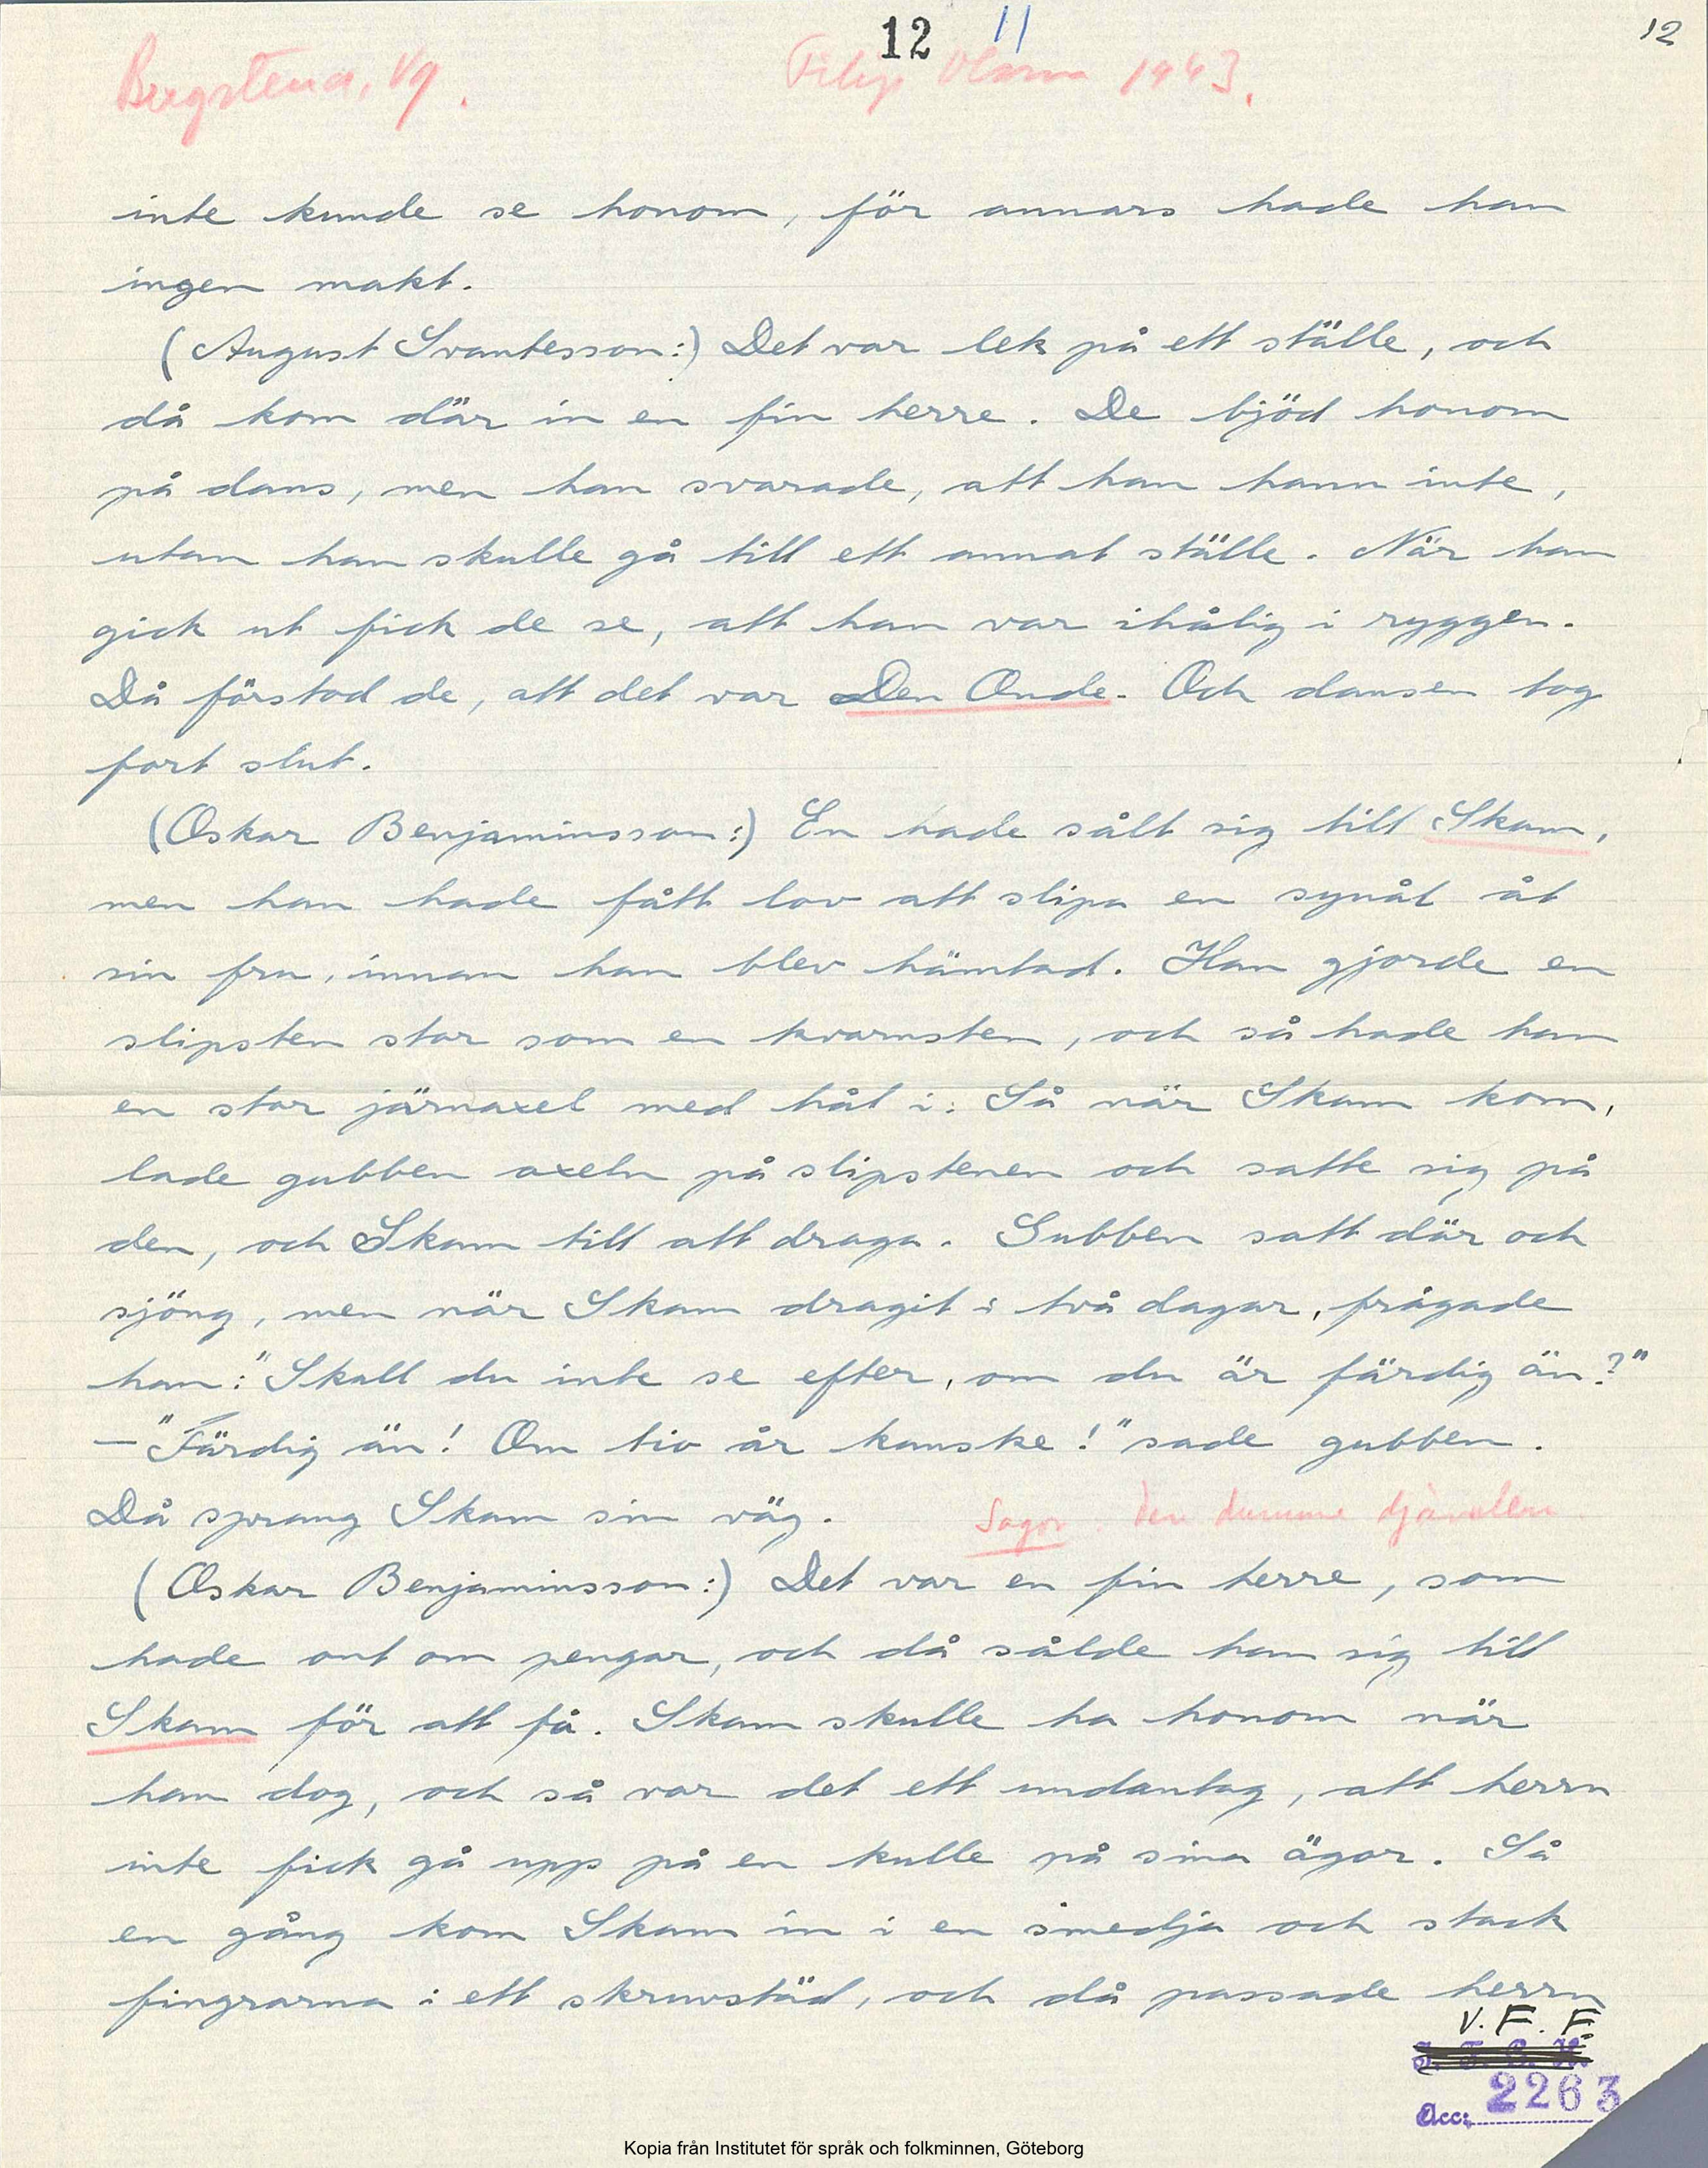 12 11 12
Bergstena, Vg. Filip 1943.
inte kunde se honom, för annars hade han
ingen makt.
(August Svantesson:) Det var lek på ett ställe, och
då kom där in en fin herre. De bjöd honom
på dans, men han svarade, att han hann inte,
utan han skulle gå till ett annat ställe. När han
gick ut fick de se, att han var ihålig i ryggen.
Då förstod de, att det var Den Onde. Och dansen tog
fort slut.
(Oskar Benjaminsson:) En hade sålt sig till Skam,
men han hade fått lov att slipa en synål åt
sin fru, innan han blev hämtad. Han gjorde en
slipsten stor som en kvarnsten, och så hade han
en stor järnaxel med hål i. Så när Skam kom,
lade gubben axeln på slipstenen och satte sig på
den, och Skam till att draga. Gubben satt där och
sjöng, men när Skam dragit i två dagar, frågade
han: "Skall du inte se efter, om du är färdig än?"
– "Färdig än! Om tio år kanske!" sade gubben.
Då sprang Skam sin väg. Sagor. den dumme djävulen.
(Oskar Benjaminsson:) Det var en fin herre, som
hade ont om pengar, och då sålde han sig till
Skam för att få. Skam skulle ha honom när
han dog, och så var det ett undantag, att herrn
inte fick gå upp på en kulle på sina ägor. Så
en gång kom Skam in i en smedja och stack
fingrarna i ett skruvstäd, och då passade herrn
V. F. F.
Acc: 2263
Kopia från Institutet för språk och folkminnen, Göteborg